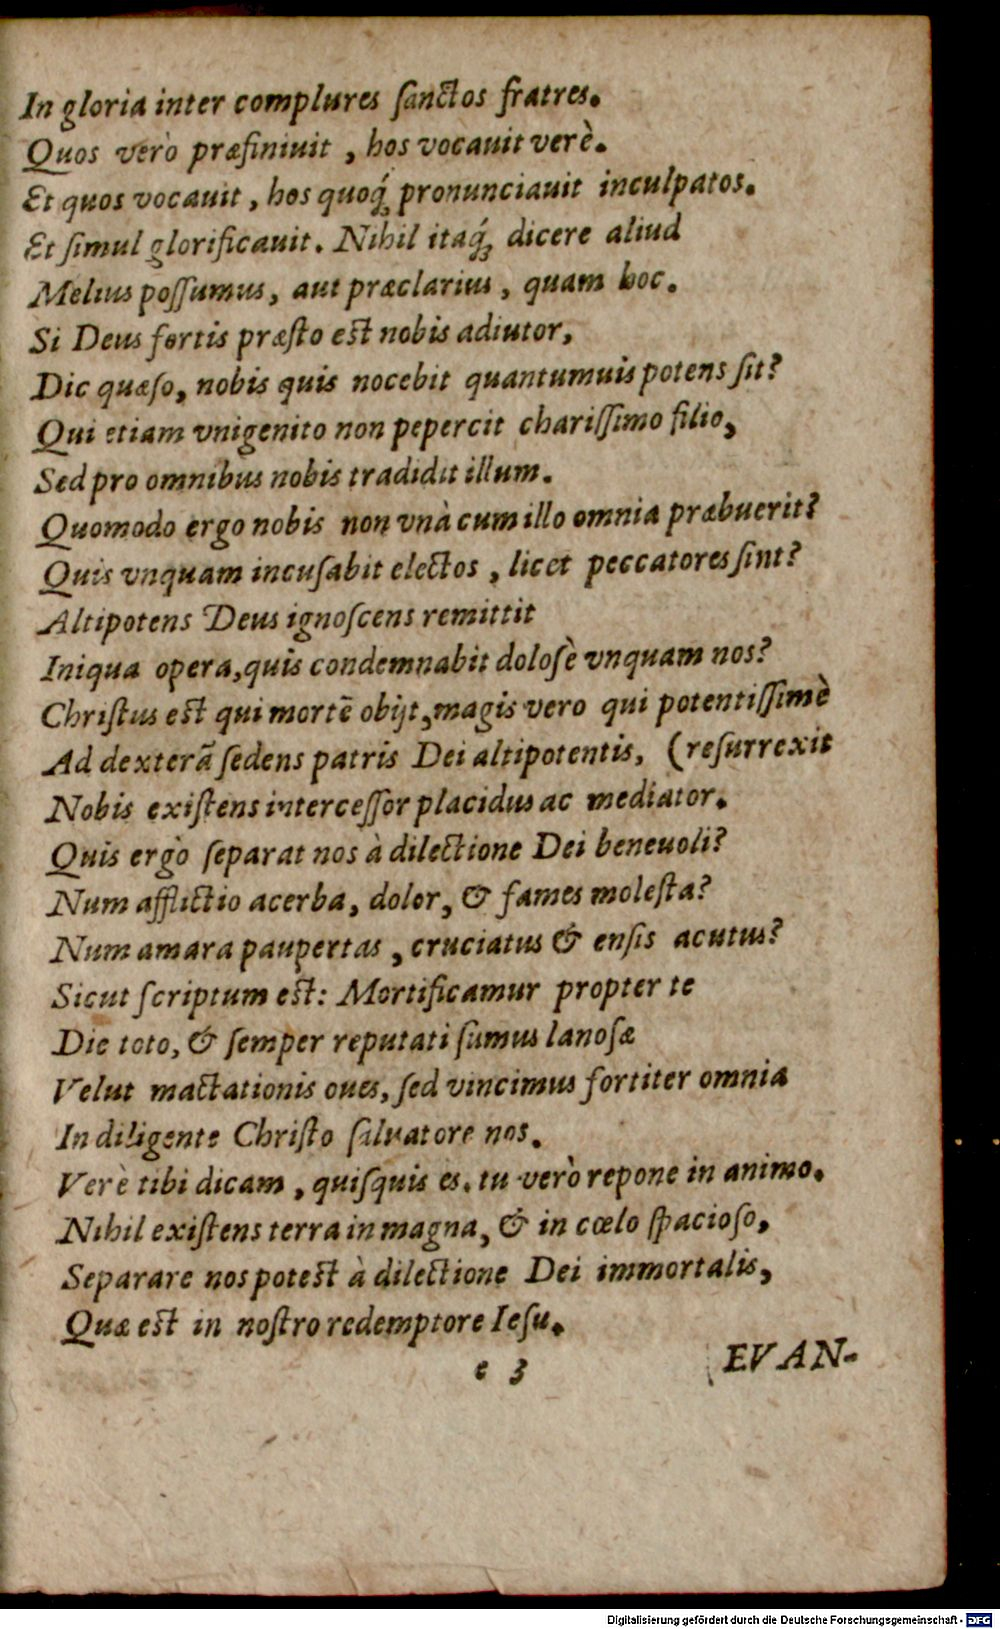 In gloria inter complures ſanctos fratres.
Quos verò præfiniuit, hos vocauit verè.
Et quos vocauit, hos quoq́; pronunciauit inculpatos.
Et ſimul glorificauit. Nihil itaq́; dicere aliud
Melius poſſumus, aut præclarius, quam hoc.
Si Deus fortis præſto est nobis adiutor,
Dic quæſo, nobis quis nocebit quantumuis potens ſit?
Qui etiam vnigenito non pepercit chariſſimo filio,
Sed pro omnibus nobis tradidit illum.
Quomodo ergo nobis non vnà cum illo omnia præbuerit?
Quis vnquam incuſabit electos, licet peccatores ſint?
Altipotens Deus ignoſcens remittit
Iniqua opera, quis condemnabit doloſè vnquam nos?
Chriſtus est qui mortē obijt, magis vero qui potentiſſimè
Ad dexterā ſedens patris Dei altipotentis, (reſurrexit
Nobis exiſtens interceſſor placidus ac mediator.
Quis ergò ſeparat nos à dilectione Dei beneuoli?
Num afflictio acerba, dolor, & fames moleſta?
Num amara paupertas, cruciatus & enſis acutus?
Sicut ſcriptum est: Mortificamur propter te
Die toto, & ſemper reputati ſumus lanoſæ
Velut mactationis oues, ſed vincimus fortiter omnia
In diligente Chriſto ſaluatore nos.
Verè tibi dicam, quiſquis es. tu verò repone in animo.
Nihil exiſtens terra in magna, & in cœlo ſpacioſo,
Separare nos potest à dilectione Dei immortalis,
Quæ est in noſtro redemptore Ieſu.
e 3 EVAN-
Digitalisierung gefördert durch die Deutsche Forschungsgemeinschaft - DFG